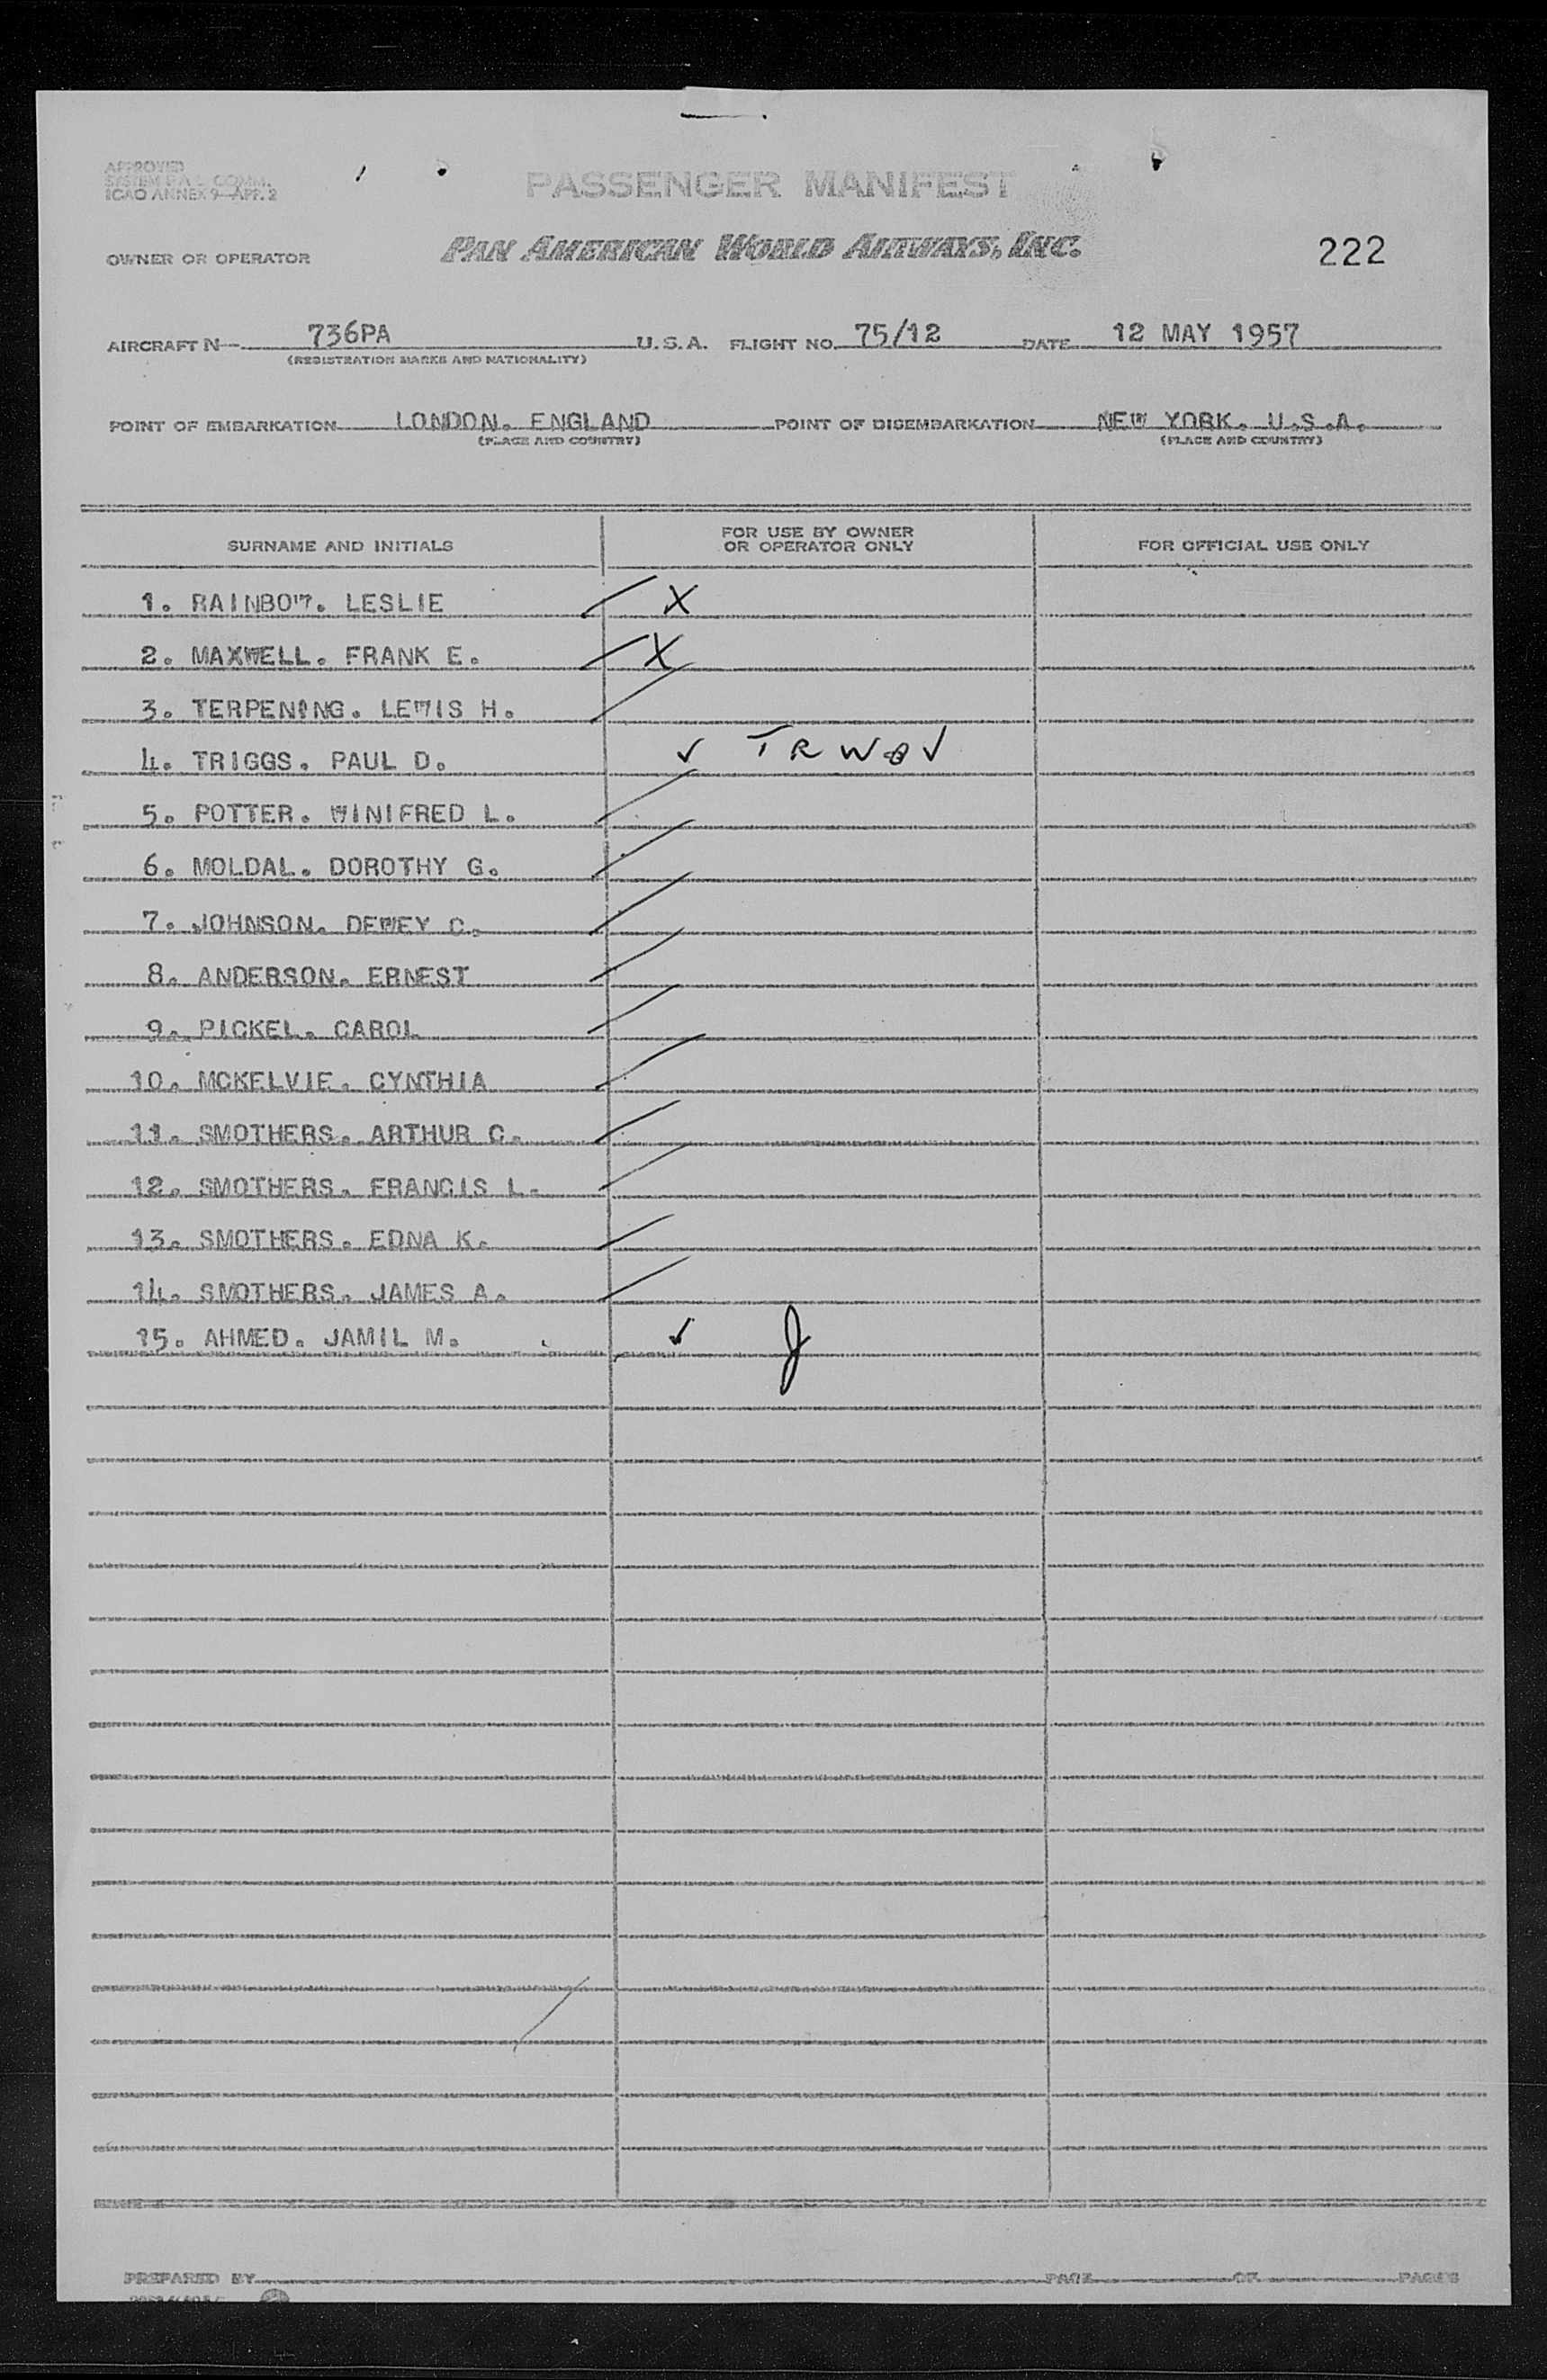 APPROVED
SYSTEM P.A.L. COMM.
ICAO ANNEX 9—APP. 2
PASSENGER MANIFEST
OWNER OR OPERATOR PAN AMERICAN WORLD AIRWAYS, INC. 222
AIRCRAFT N— 736PA U.S.A. FLIGHT NO. 75/12 DATE 12 MAY 1957
(REGISTRATION MARKS AND NATIONALITY)
POINT OF EMBARKATION LONDON. ENGLAND POINT OF DISEMBARKATION NEW YORK. U.S.A.
(PLACE AND COUNTRY) (PLACE AND COUNTRY)
SURNAME AND INITIALS FOR USE BY OWNER OR OPERATOR ONLY FOR OFFICIAL USE ONLY
1. RAINBOW. LESLIE X
2. MAXWELL. FRANK E. X
3. TERPENING. LEWIS H.
4. TRIGGS. PAUL D. ✓ TRWOV
5. POTTER. WINIFRED L.
6. MOLDAL. DOROTHY G.
7. JOHNSON. DEWEY C.
8. ANDERSON. ERNEST
9. PICKEL. CAROL
10. MCKELVIE. CYNTHIA
11. SMOTHERS. ARTHUR C.
12. SMOTHERS. FRANCIS L.
13. SMOTHERS. EDNA K.
14. SMOTHERS. JAMES A.
15. AHMED. JAMIL M. ✓ J
PREPARED BY PAGE OF PAGES